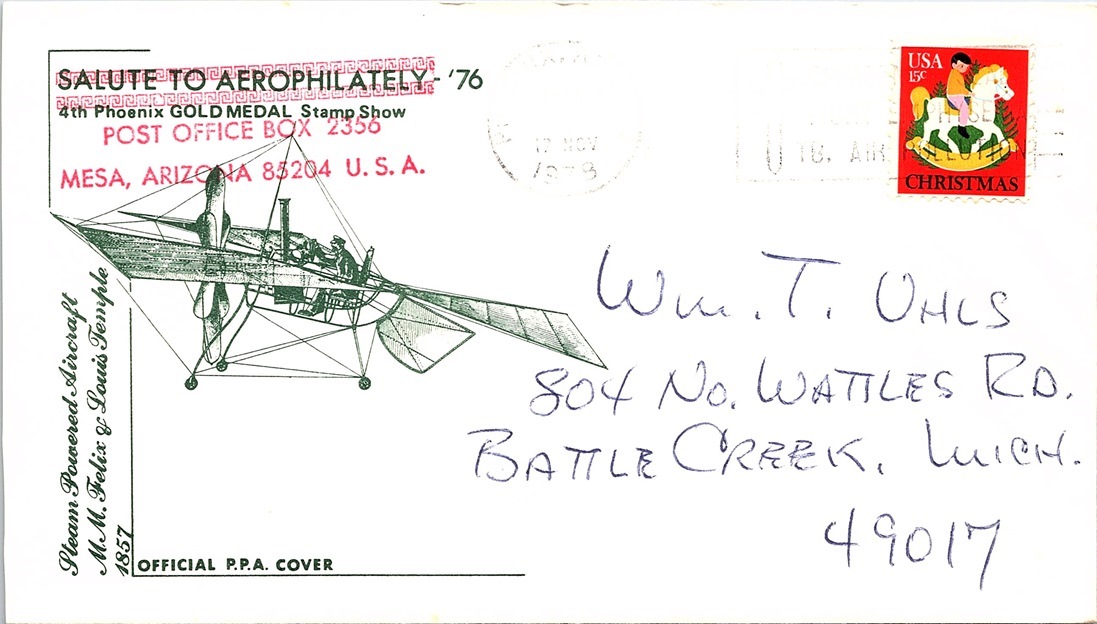 SALUTE TO AEROPHILATELY - '76
4th Phoenix GOLD MEDAL Stamp Show
POST OFFICE BOX 2356
MESA, ARIZONA 85204 U. S. A.
12 NOV
1978
TO: AIR POLLUTION
USA
15c
CHRISTMAS
Wm. T. UHLS
804 No. WATTLES RD.
BATTLE CREEK, MICH.
49017
Steam Powered Aircraft
M.M. Felix & Louis Temple
1857
OFFICIAL P.P.A. COVER